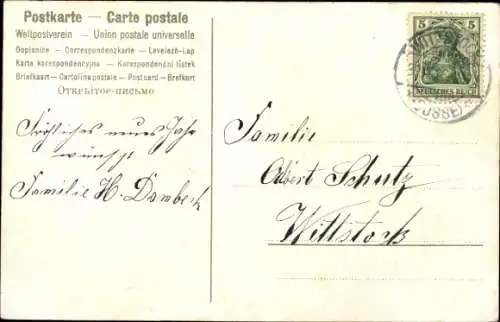 Postkarte — Carte postale
Weltpostverein — Union postale universelle
Dopisnice - Correspondenzkarte - Levelező-Lap
Karta korespondencyjna - Korespondenční lístek
Briefkaart - Cartolina postale - Postcard - Brefkort
Открытое-письмо
Fröhliches neues Jahr
wünscht
Familie H. Dambeck
Familie
Albert Schulz
Wittstock
5 5
DEUTSCHES REICH
WITTSTOCK
(DOSSE)